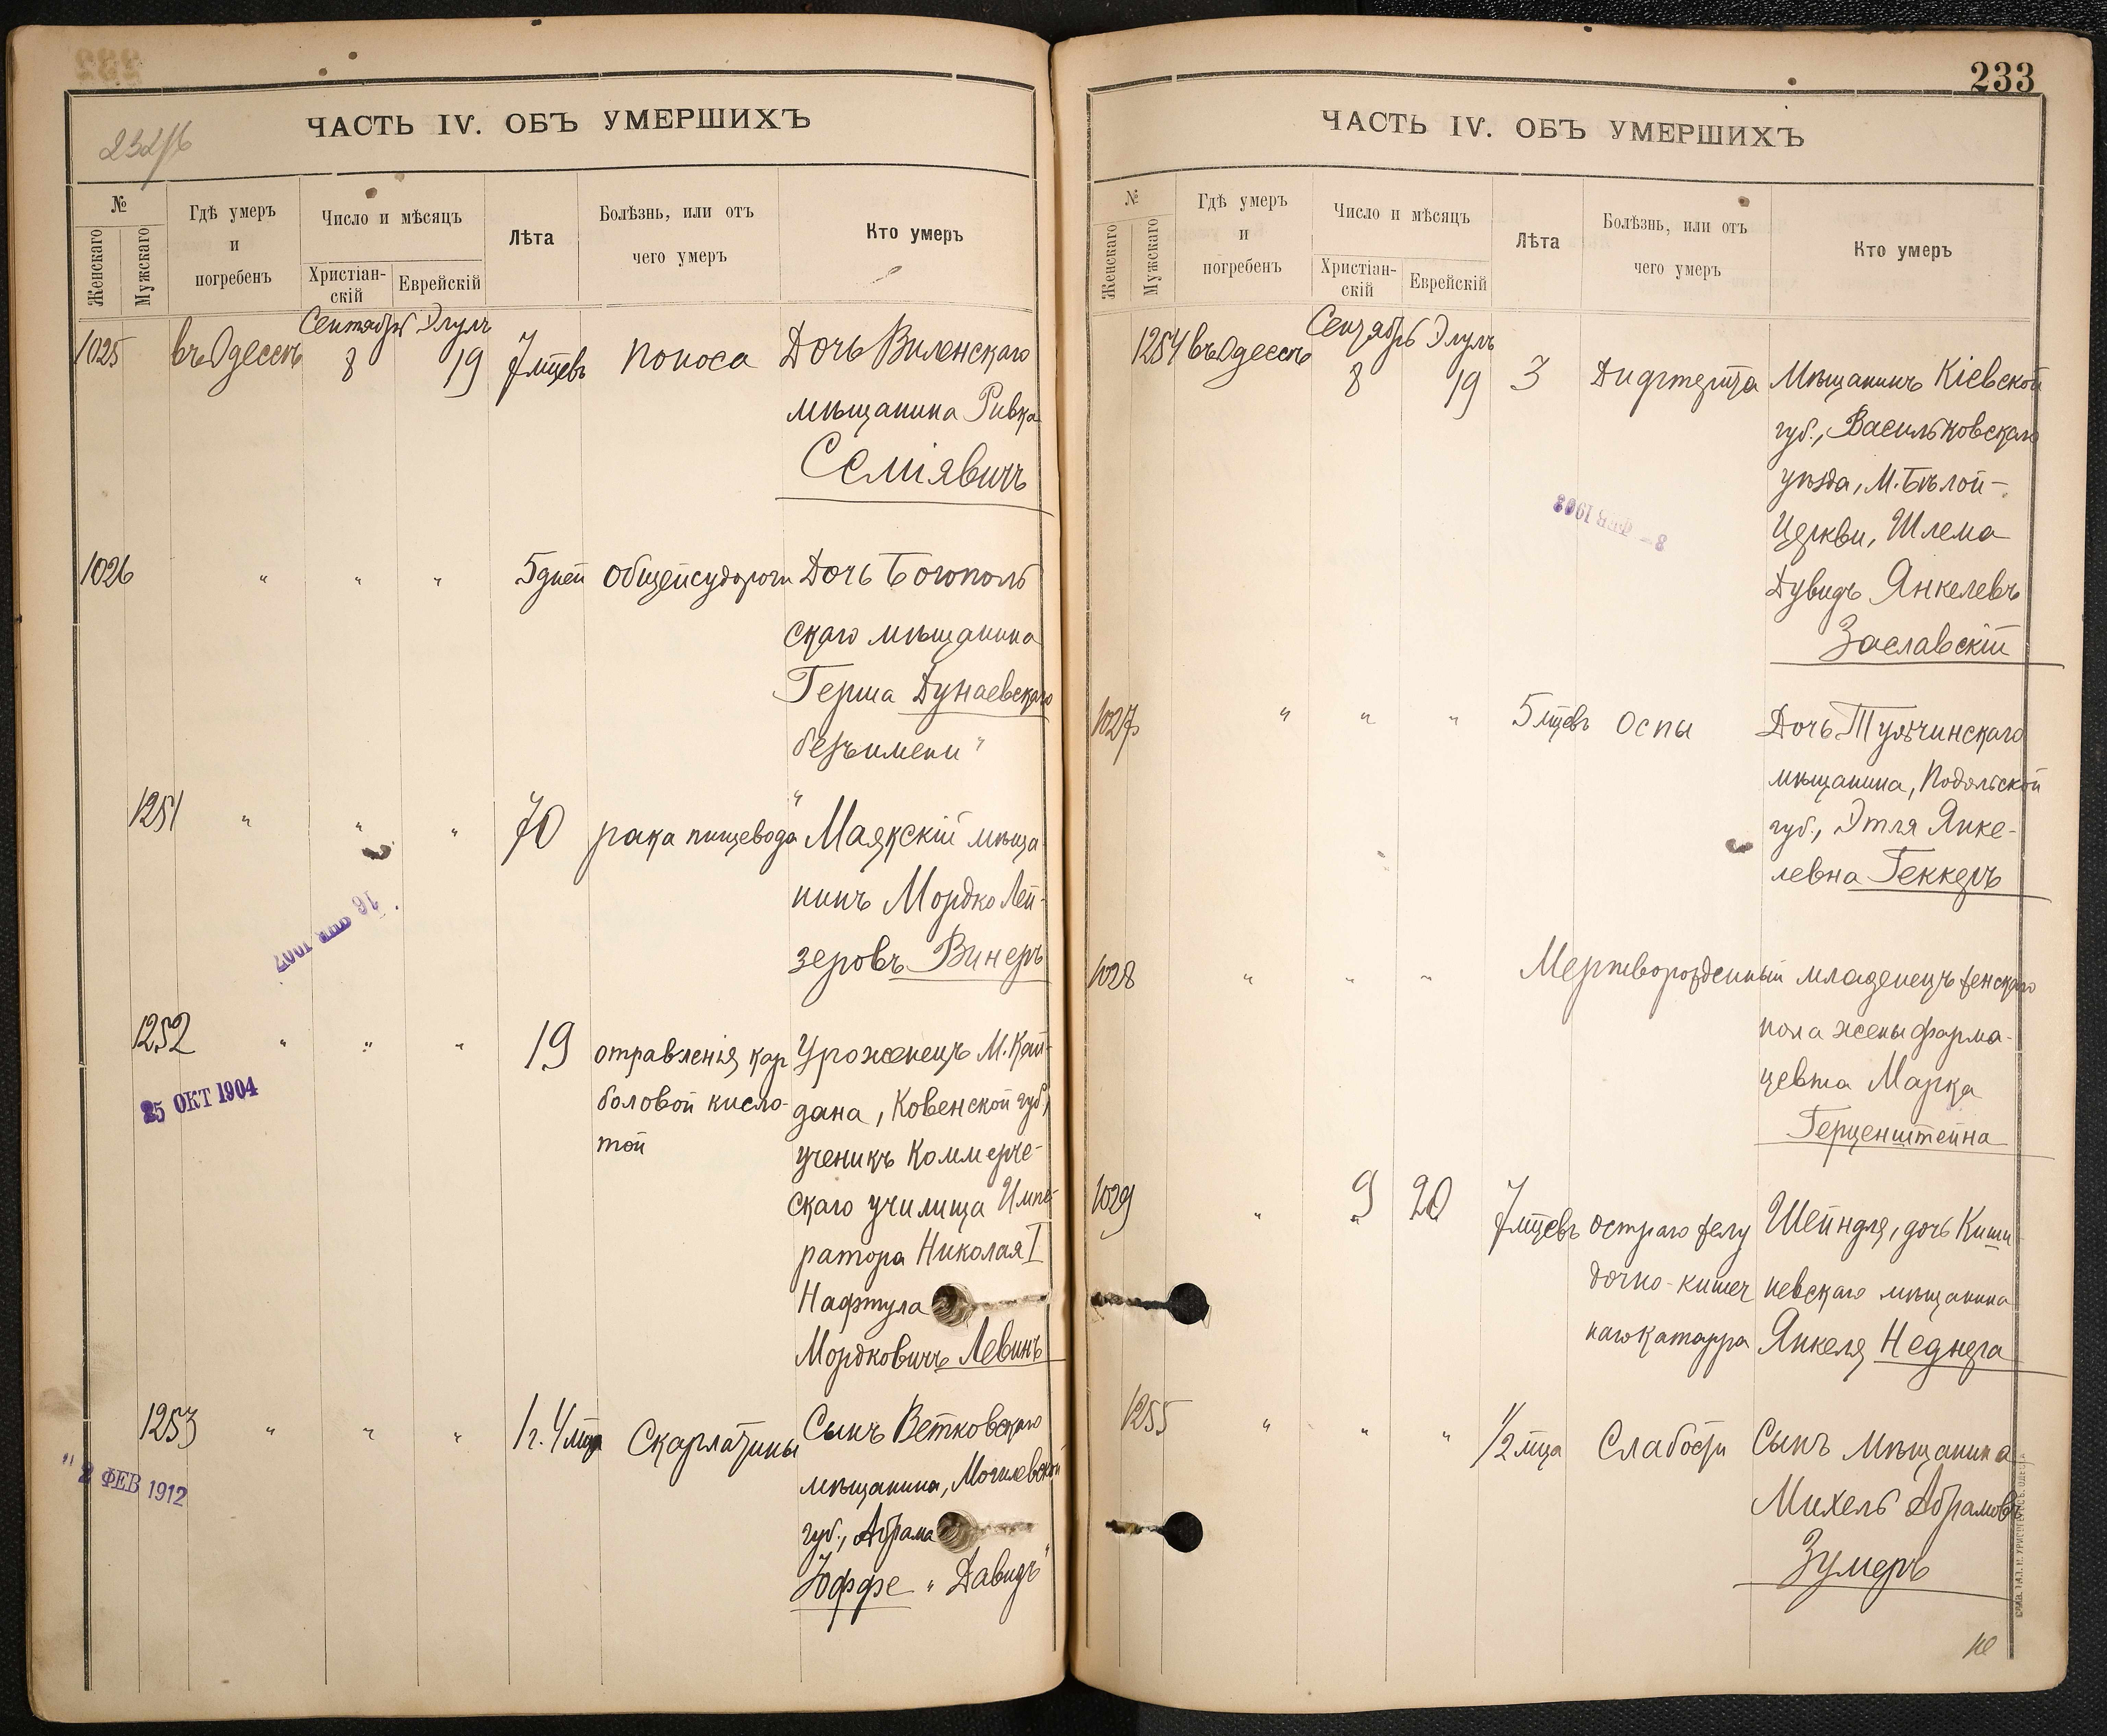 ЧАСТЬ IV. ОБЪ УМЕРШИХЪ
№
Женскаго
Мужскаго
Гдѣ умеръ
и
погребенъ
Число и мѣсяцъ
Христіан-
скій
Еврейскій
Лѣта
Болѣзнь, или отъ
чего умеръ
Кто умеръ
Сентябрь Элулъ
1025 въ Одессѣ 8 19 7 мцевъ поноса Дочь Виленскаго
мѣщанина Ривка
Семіявичъ
1026 " " " 5 дней общей судороги Дочь Богополь
скаго мѣщанина
Герша Дунаевскаго
безъ имени "
1251 " " " 70 рака пищевода Маякскій мѣща
нинъ Мордко Лей-
зеровъ Винеръ
1252 " " " 19 отравленія кар Уроженецъ М. Кей-
боловой кисло- дана, Ковенской губ.,
той ученикъ Коммерче-
25 ОКТ 1904
скаго училища Импе-
ратора Николая I
Нафтула
Мордковичъ Левинъ
1253 " " " 1 г. 4 мца Скарлатины Сынъ Ветковскаго
2 ФЕВ 1912
мѣщанина, Могилевской
губ., Абрама
Юффе " Давидъ "
233
ЧАСТЬ IV. ОБЪ УМЕРШИХЪ
№
Женскаго
Мужскаго
Гдѣ умеръ
и
погребенъ
Число и мѣсяцъ
Христіан-
скій
Еврейскій
Лѣта
Болѣзнь, или отъ
чего умеръ
Кто умеръ
Сентябрь Элулъ
1254 въ Одессѣ 8 19 3 Дифтерита Мѣщанинъ Кіевской
губ., Васильковскаго
уѣзда, М. Бѣлой-
Церкви, Шлема
Дувидъ Янкелевъ
Заславскій
1027 " " " 5 мцевъ Оспы Дочь Тульчинскаго
мѣщанина, Подольской
губ., Этля Янке-
левна Геккеръ
1028 " " " Мертворожденный младенецъ женскаго
пола жены фарма-
цевта Марка
Герценштейна
1029 " 9 20 7 мцевъ остраго желу Шейндля, дочь Киши
дочно-кишеч невскаго мѣщанина
наго катарра Янкеля Неднера
1255 " " " 1/2 мца Слабости Сынъ мѣщанина
Михель Абрамовъ
Зумеръ